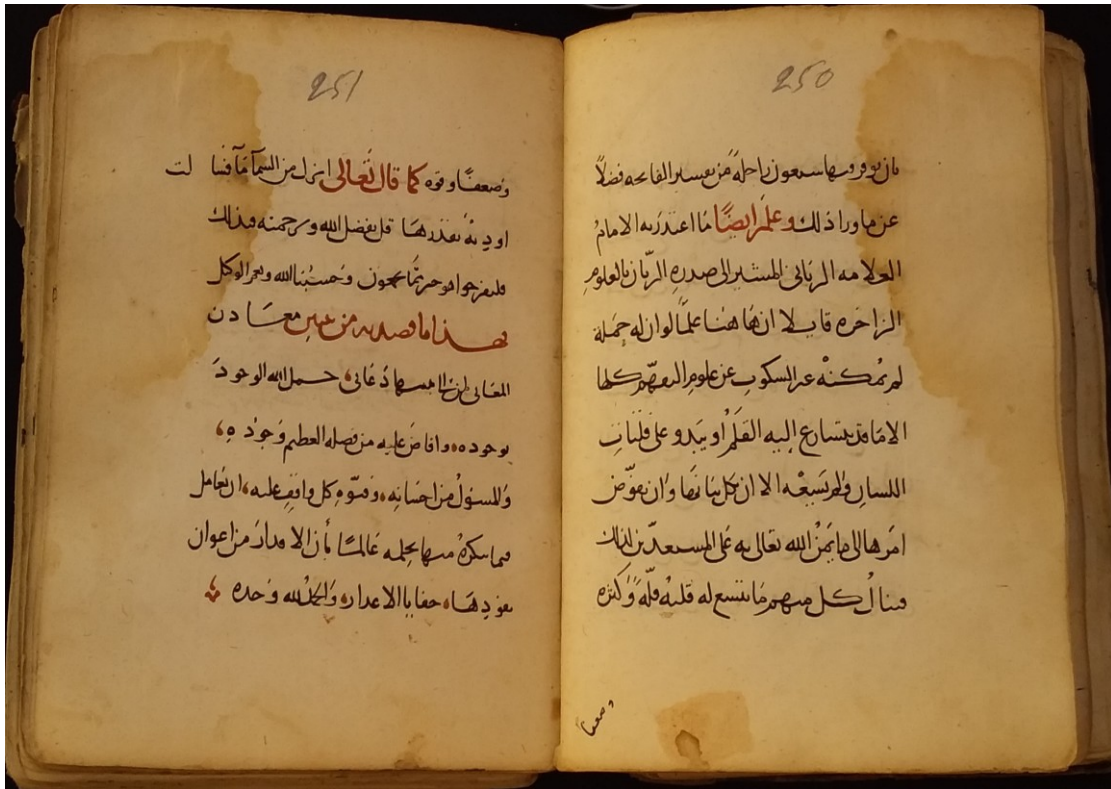 250
بان يوقر منها سبعون راحلة من تفسير الفاتحه فضلاً
عن ما ورا ذلك وعلم ايضًا ما اعتذر به الامامُ
العلامه الرباني المشير الى صدره الريّان بالعلومِ
الزاخره قايلا ان هَا هُنا علمًا لو ان له حَملة
لم يُمكنه عن السكوتِ عن علومِ التفهّم كلها
الا مَا قد يتسارع إليه القَلَمُ او يَبدو على فلتاتِ
اللسانِ ولم يَسَعْه الا ان يكل بيَانها وان يفوّض
امرَها الى ما يَمنُّ الله تعالى به عَلى المستعدّين لذلك
فينالُ كل منهم مَا يتسع له قلبُه قلّةً وَكثره
وضعفا
251
وضعفًا وقوه كما قال تَعَالى انزل من السمآ مَآ فسا لت
اوديةٌ بقدرهَا قل بفضل الله وبرحمته فبذلك
فليفرحوا هو خير ممّا يجمعون وَحسبُنا الله ونعم الوكل
فهذا ما قصدته من معَادن
المعَاني حمل الله الوجودَ
بوجوده وافاضَ عليه من فضله العظيم وَجُوْدهِ
وَالمسئولُ من احسَانِه وفتوّه كل واقفٍ عليه ان يُعامل
مما ينكرهُ منها بحلمه عَالمًا بأن الاقدارَ من اعوان
الاعدار وَالحمْدُ لله وَحده